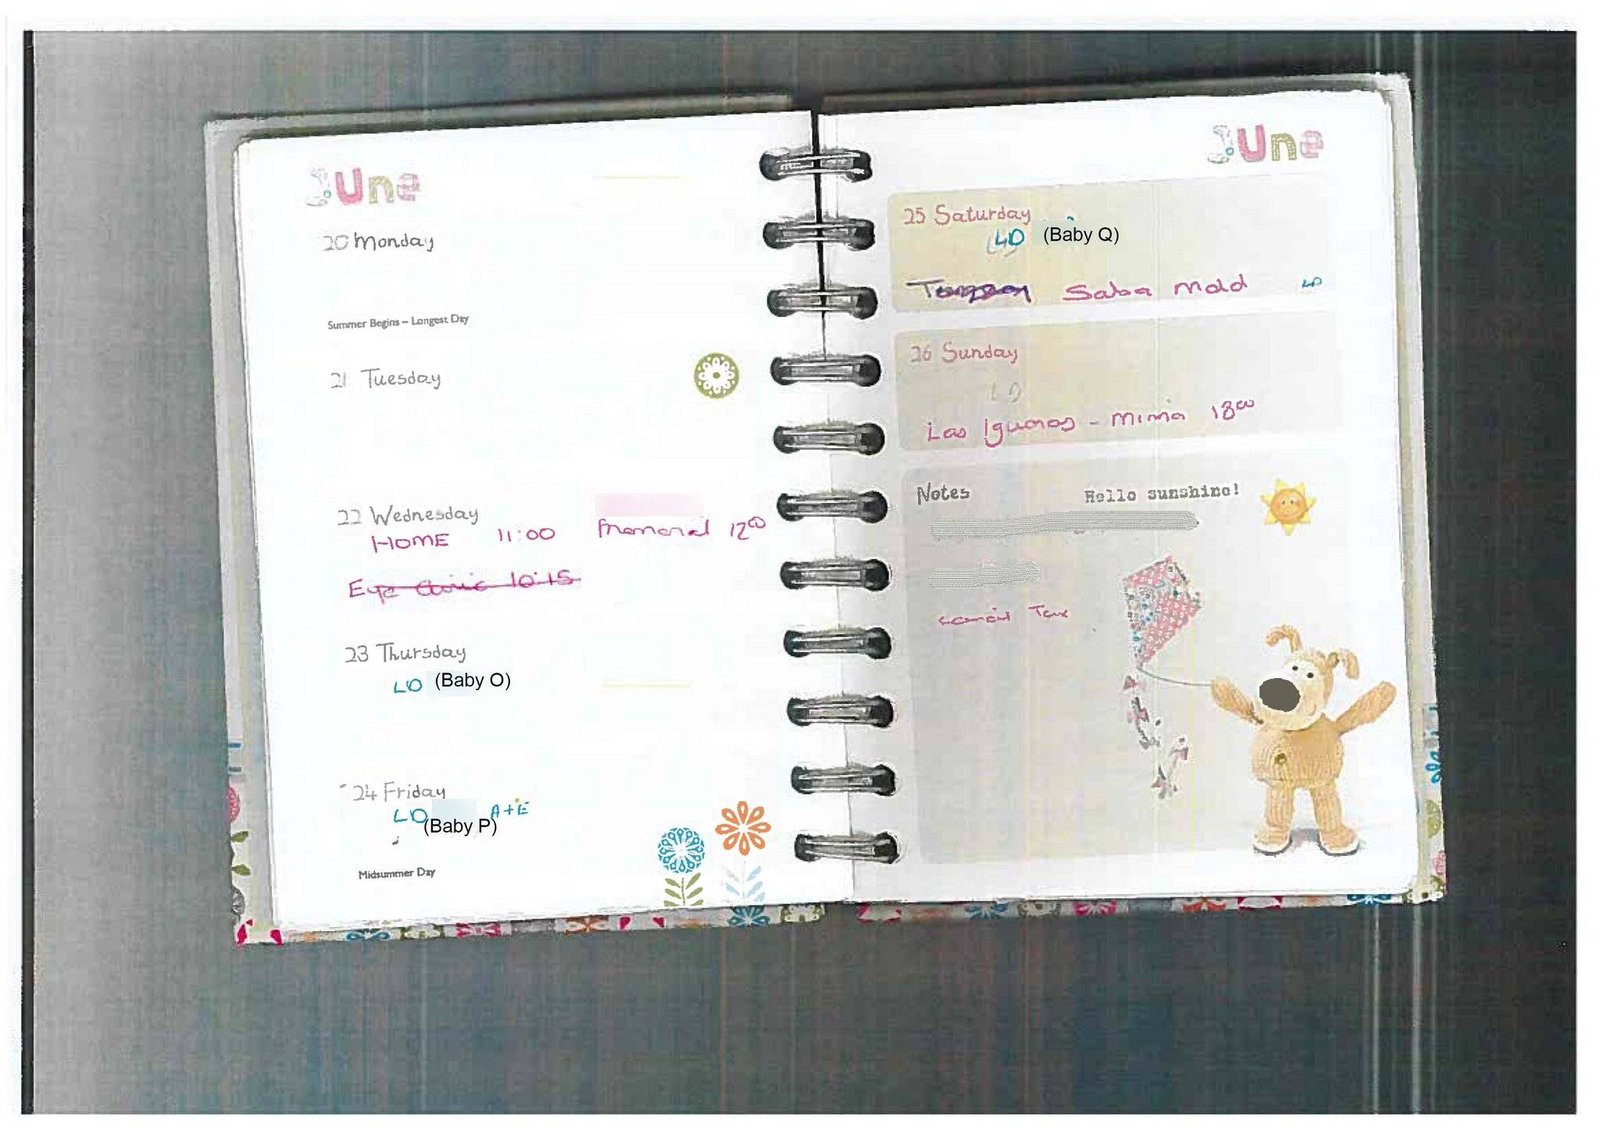 June
20 Monday
Summer Begins – Longest Day
21 Tuesday
22 Wednesday
HOME 11:00 12⁰⁰
Eye Clinic 10:15
23 Thursday
LD (Baby O)
24 Friday
LD A+E
(Baby P)
Midsummer Day
June
25 Saturday
LD (Baby Q)
Saba Mold LD
26 Sunday
LD
Las Iguanas - Minna 18⁰⁰
Notes Hello sunshine!